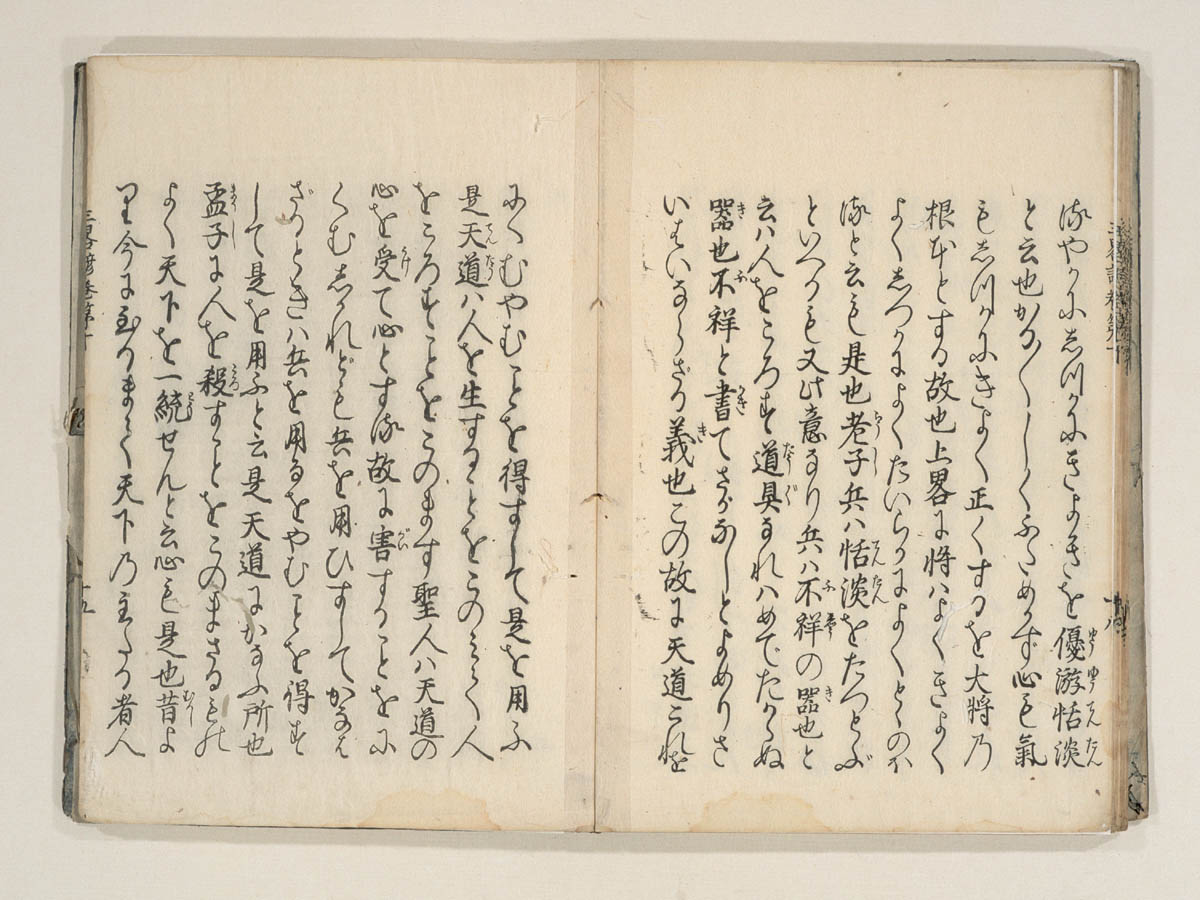 源やかにしつかにきよきを優游恬淡
と云也かろ〳〵しくふためかず心も氣
もしつかにきよく正くするを大將乃
根本とする故也上畧に將ハよくきよく
よくしつかによくたいらかによくとゝのふ
ると云も是也老子兵ハ恬淡をたつとぶ
といへるも又此意なり兵ハ不祥の器也と
云ハ人をころす道具なれハめでたからぬ
器也不祥と書てさがなしとよめりさ
いはいならざる義也この故に天道これを
にくむやむことを得すして是を用ふ
是天道ハ人を生することをこのミて人
をころすことをこのます聖人ハ天道の
心を受て心とする故に害することをに
くむしかれども兵を用ひすしてかなは
ざるときハ兵を用るをやむことを得す
して是を用ふと云是天道にかなふ所也
孟子に人を殺すことをこのまさるもの
よく天下を一統せんと云心も是也昔よ
り今に至るまて天下乃主たる者人
三畧諺卷第十
十九